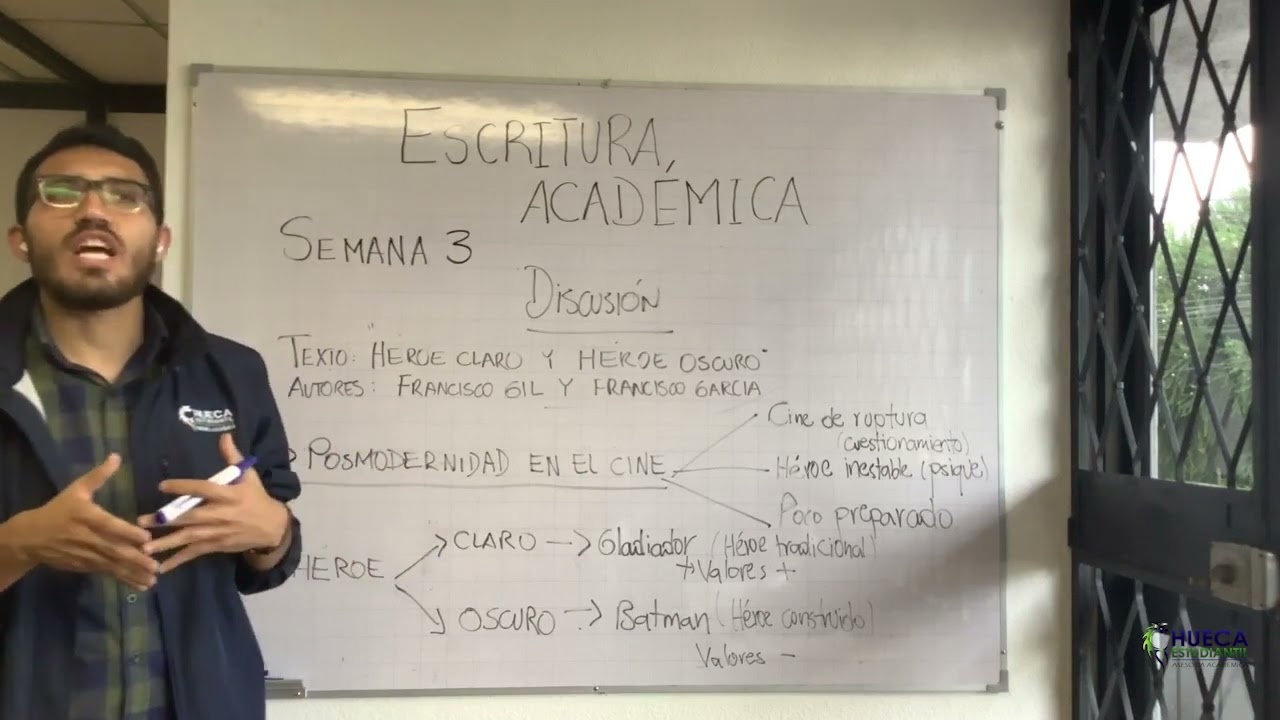 ESCRITURA
ACADÉMICA
SEMANA 3
DISCUSIÓN
TEXTO: "HEROE CLARO Y HÉROE OSCURO"
AUTORES: FRANCISCO GIL Y FRANCISCO GARCIA
POSMODERNIDAD EN EL CINE
Cine de ruptura
(cuestionamiento)
Héroe inestable (psique)
Poco preparado
HÉROE
CLARO → Gladiador (Héroe tradicional)
+ Valores +
OSCURO → Batman (Héroe construido)
Valores -
HUECA
ESTUDIANTIL
HUECA
ESTUDIANTIL
ASESORÍA ACADÉMICA